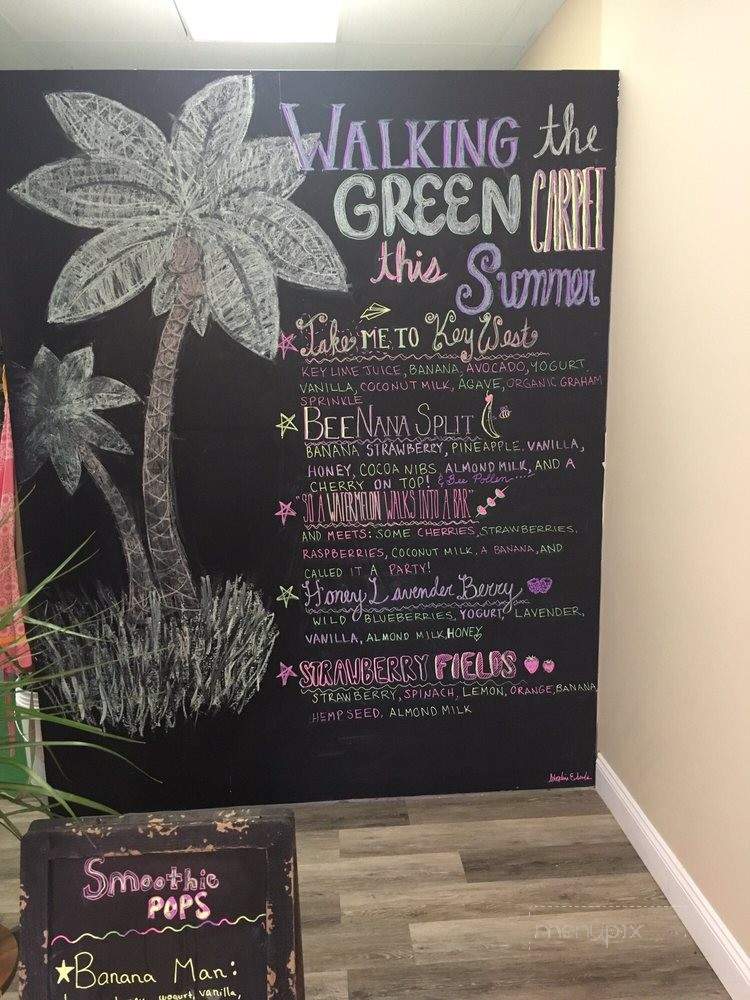 WALKING the
GREEN CARPET
this Summer
Take ME TO Key West
KEY LIME JUICE, BANANA, AVOCADO, YOGURT,
VANILLA, COCONUT MILK, AGAVE, ORGANIC GRAHAM
SPRINKLE
BEENANA SPLIT
BANANA STRAWBERRY, PINEAPPLE, VANILLA,
HONEY, COCOA NIBS, ALMOND MILK, AND A
CHERRY ON TOP! & Bee Pollen
"SO A WATERMELON WALKS INTO A BAR"
AND MEETS: SOME CHERRIES, STRAWBERRIES,
RASPBERRIES, COCONUT MILK, A BANANA, AND
CALLED IT A PARTY!
Honey Lavender Berry
WILD BLUEBERRIES, YOGURT, LAVENDER,
VANILLA, ALMOND MILK, HONEY
STRAWBERRY FIELDS
STRAWBERRY, SPINACH, LEMON, ORANGE, BANANA
HEMPSEED, ALMOND MILK
Smoothie
POPS
Banana Man:
yogurt, vanilla,
menupix